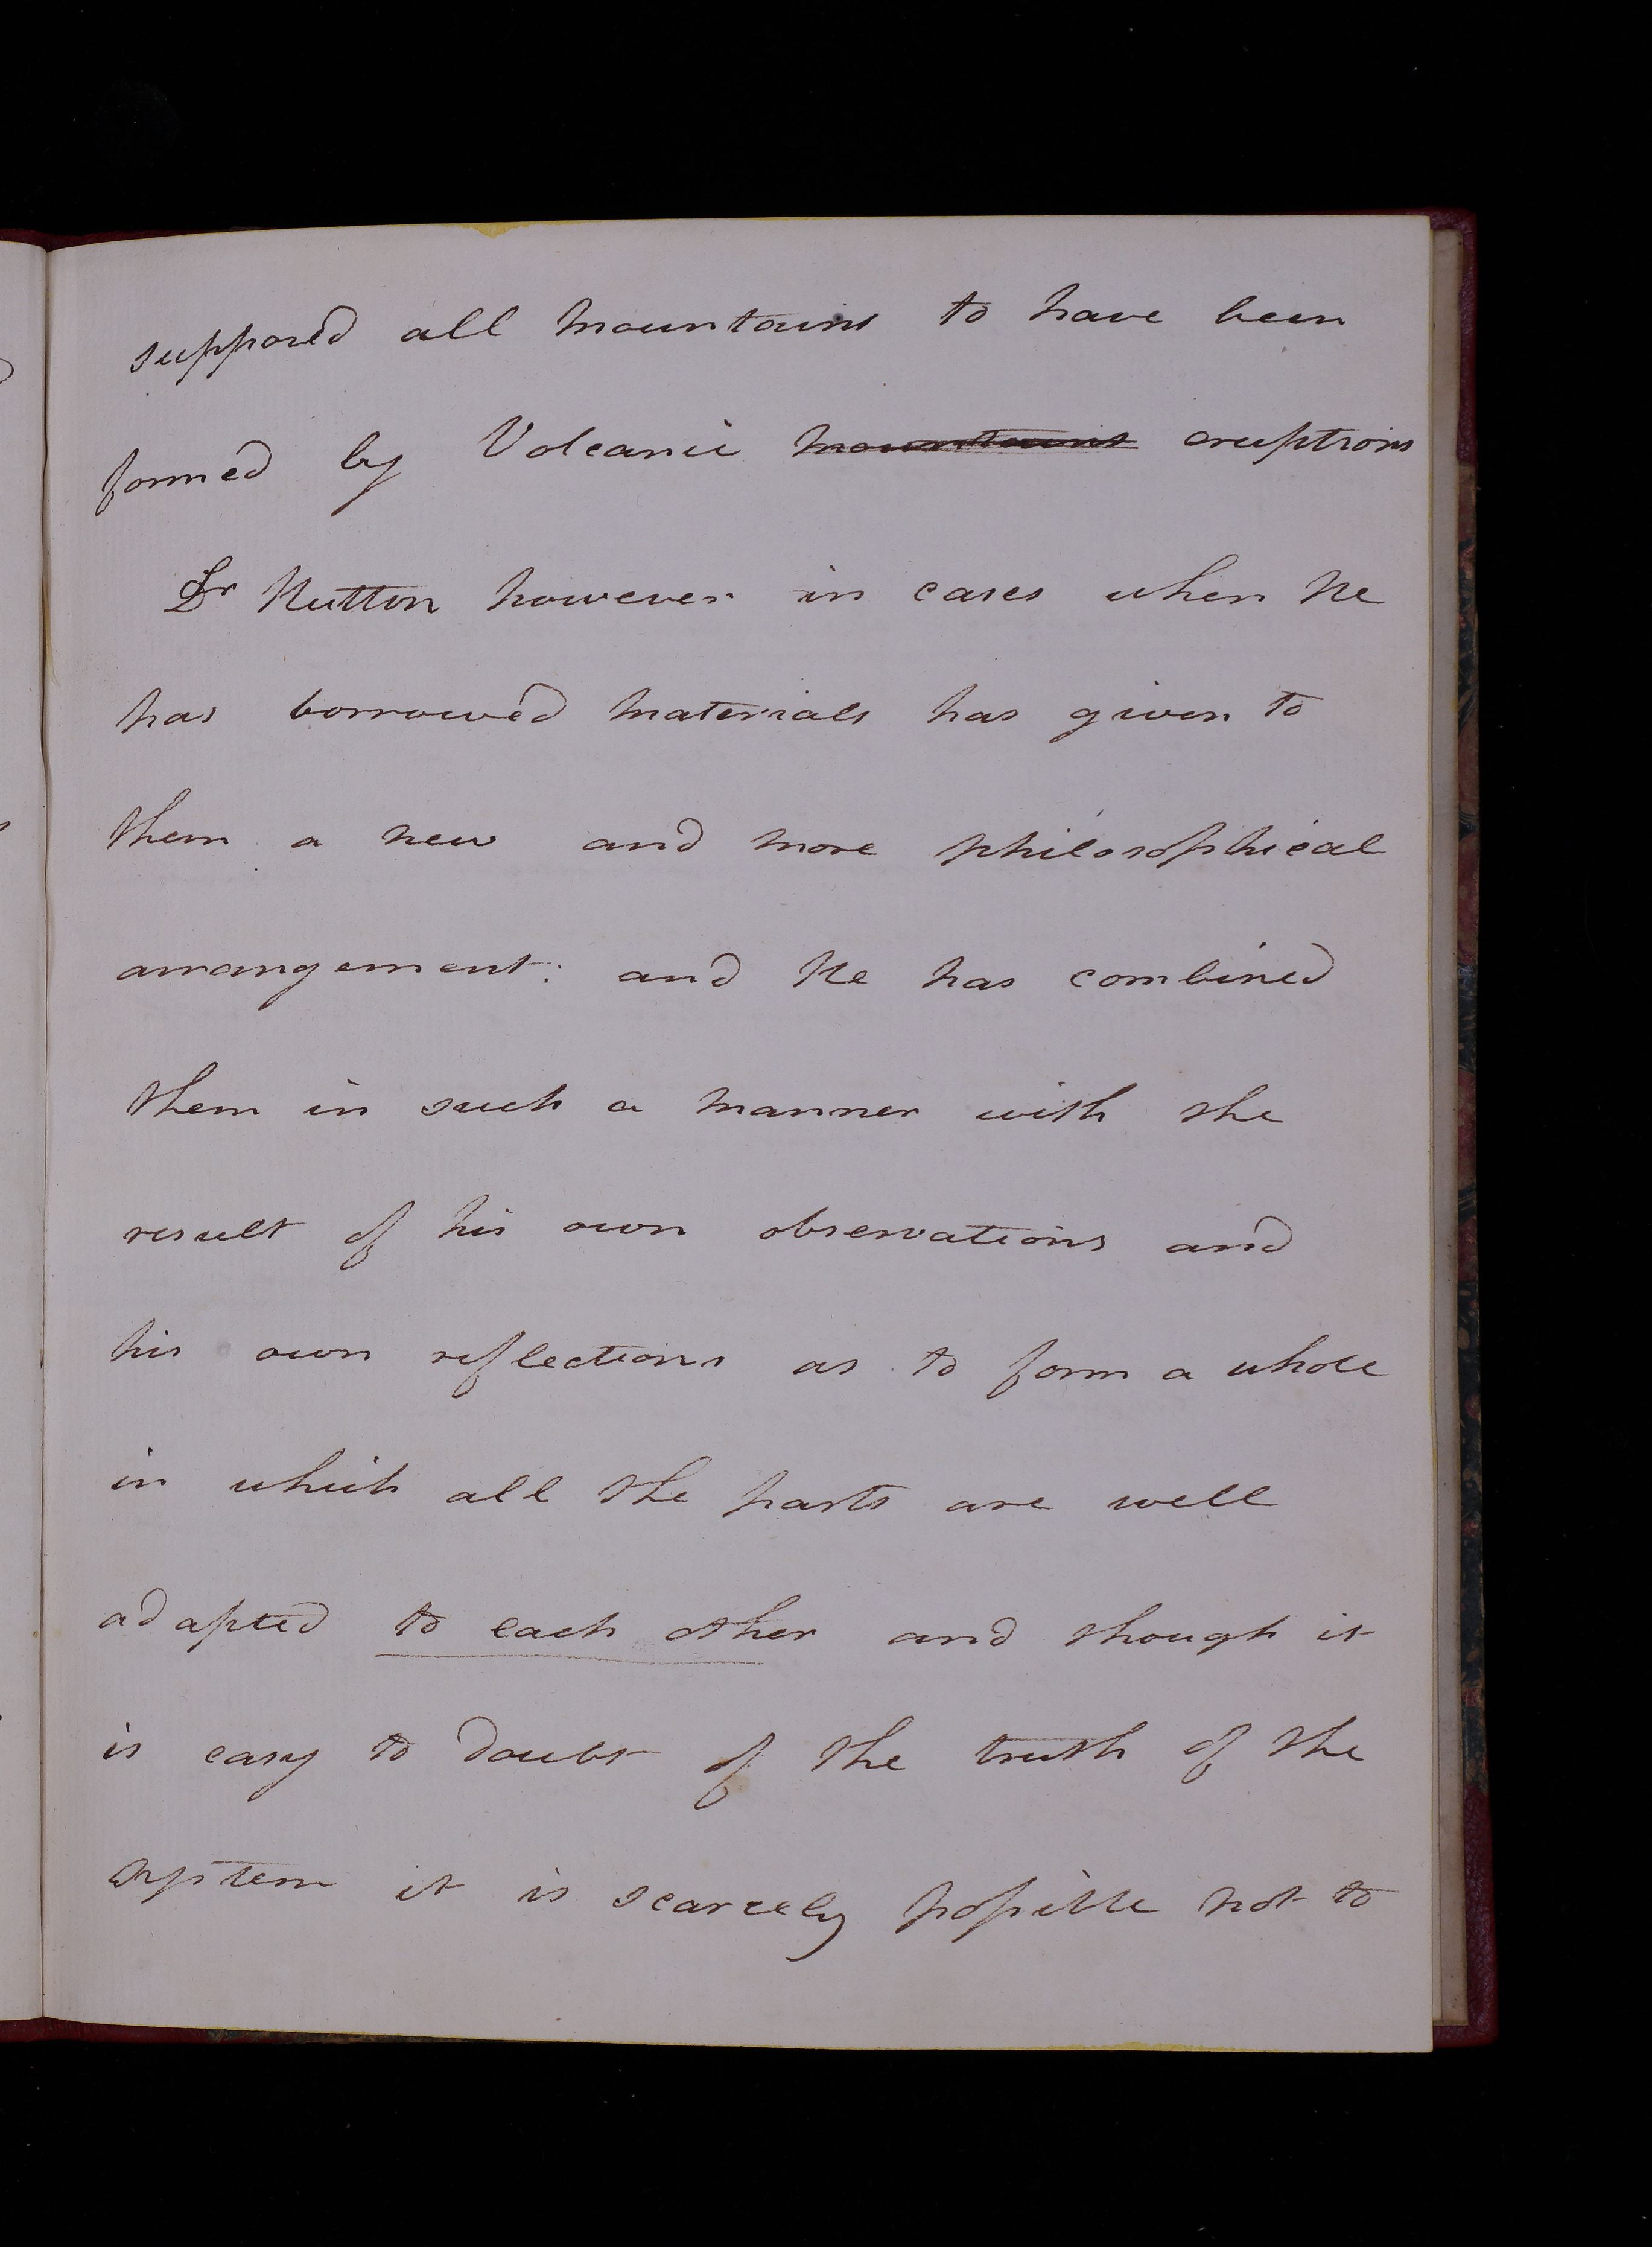 supposed all mountains to have been
formed by Volcanic mountains eruptions
Dr Hutton however in cases when He
has borrowed materials has given to
them a new and more philosophical
arrangement: and He has combined
them in such a manner with the
result of his own observations and
his own reflections as to form a whole
in which all the parts are well
adapted to each other and though it
is easy to doubt of the truth of the
system it is scarcely possible not to